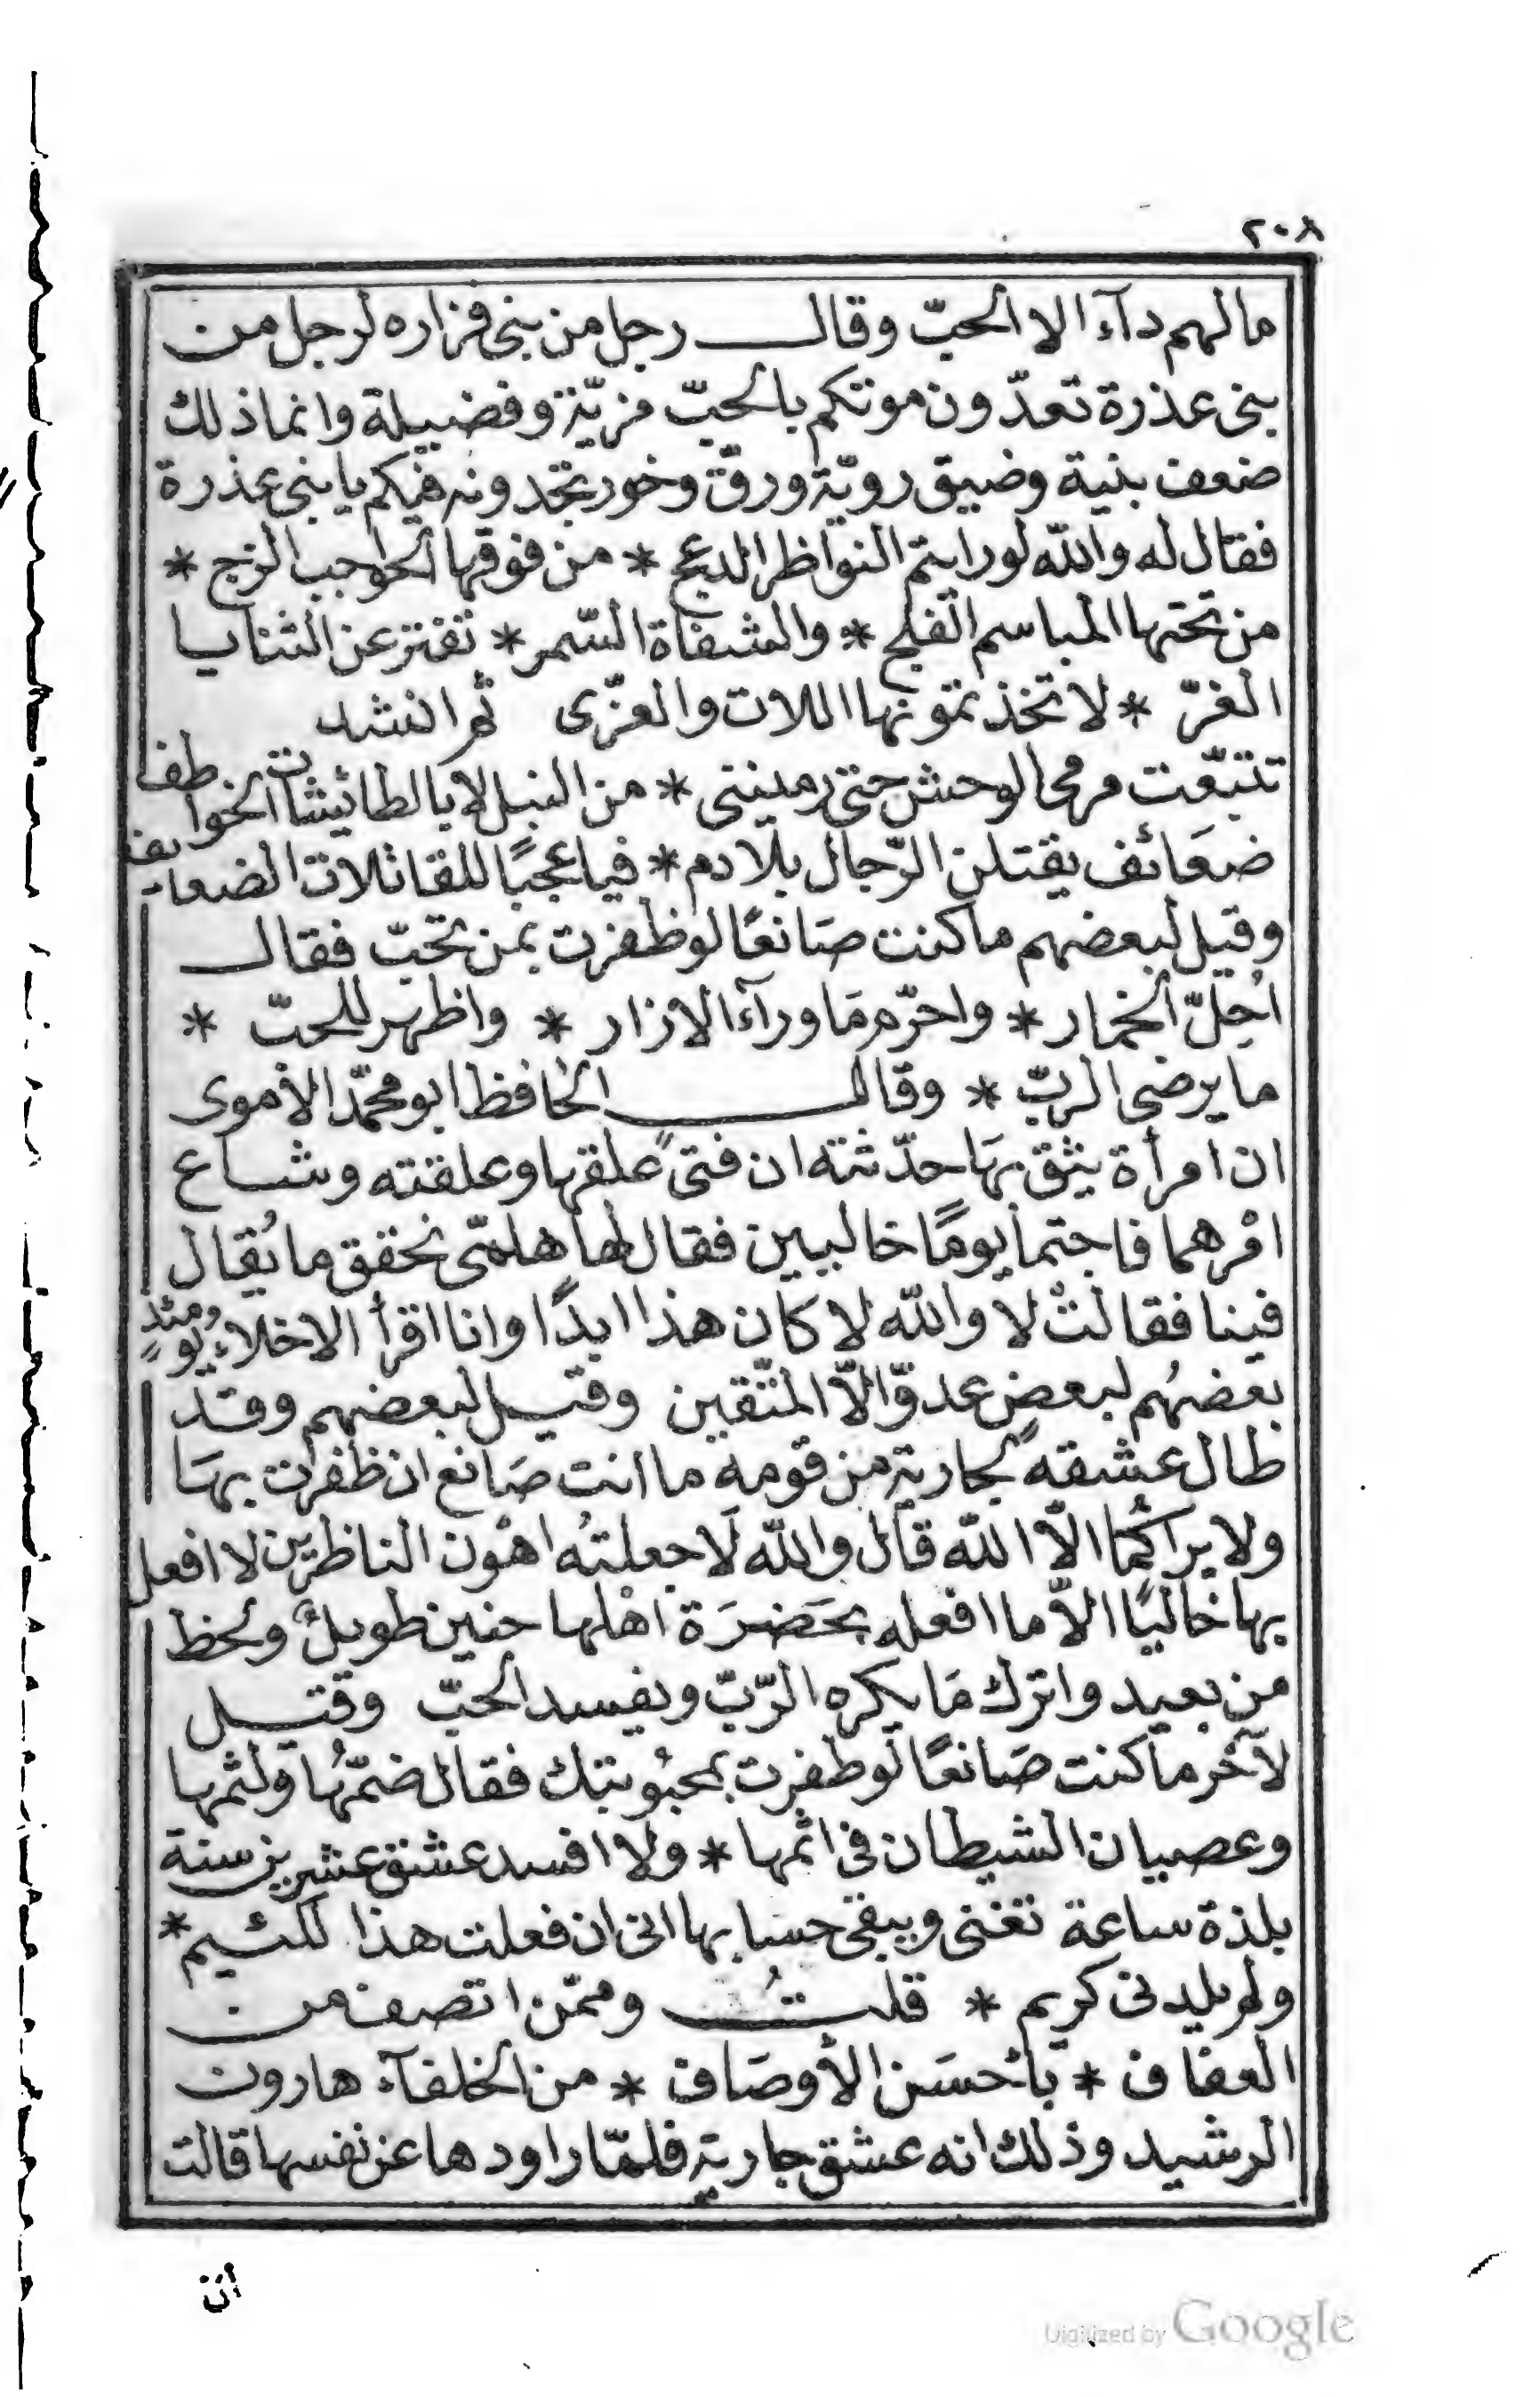 ٢٠٨
مالهم دآء الا الحبّ وقال رجل من بنى فزاره لرجل من
بنى عذرة تعدّون موتكم بالحبّ مزيّة وفضيلة وانما ذلك
ضعف بنية وضيق رويّة ورقّة وخور تجدونه فيكم يا بنى عذرة
فقال له والله لو رايتم النواظر الدعج * من فوقها الحواجب الزج *
من تحتها المباسم الفلج * والشفاة السّمر * تفتر عن الثنايا
الغرّ * لا تخذ تمونها اللات والعزّى ثم انشد
تتبّعت مرمى الوحش حتى رمينتى * من النبل لا بالطائيشات الخواطف
ضعَائف يقتلن الرّجال بلا دم * فيا عجبًا للقاتلات الضعايف
وقيل لبعضهم ما كنت صَانعًا لو ظفرت بمن تحبّ فقال
احُلّ الخمار * واحرّم مَا ورآء الازار * واظهر للحبّ *
ما يرضى الربّ * وقال الحافظ ابو محمّد الأموى
ان امرأة يثق بهَا حدّثته ان فتىً علقها وعلقته وشاع
امْرهما فاجتمأ يومًا خاليين فقال لها هلمّى نحقق ما يُقال
فينا فقالتْ لا والله لا كان هذا ابدًا وانا اقرأ الاخلاء يومئذٍ
بعضهُم لبعض عدوّ الاّ المتّقين وقيل لبعضهم وقد
طال عشقه لجارية من قومه ما انت صَانع ان ظفرت بهَا
ولا يراكُما الاّ الله قال والله لَا جعلتُه اهْون الناظرين لا افعل
بها خاليًا الاّ ما افعله بحَضرَة اهْلها حنين طويل ولحظ
من بعيد واترك مَا يكره الرّبّ ويفسد الحبّ وقيل
لآخر ما كنت صَانعًا لو ظفرت بمحبُوبتك فقال ضمّهُا ولثمها
وعصيان الشيطان فى اثمها * ولا افسد عشق عشرين سنة
بلذة ساعة تفنى ويبقى حسابها انى ان فعلت هذا للئيم *
ولم يلدنى كريم * قلتُ وممّن اتصف من
العفاف * بأحسَن الأوصَاف * من الخلفآء هارون
الرشيد وذلك انه عشق جارية فلمّا راودها عن نفسها قالت
أن
Digitized by Google